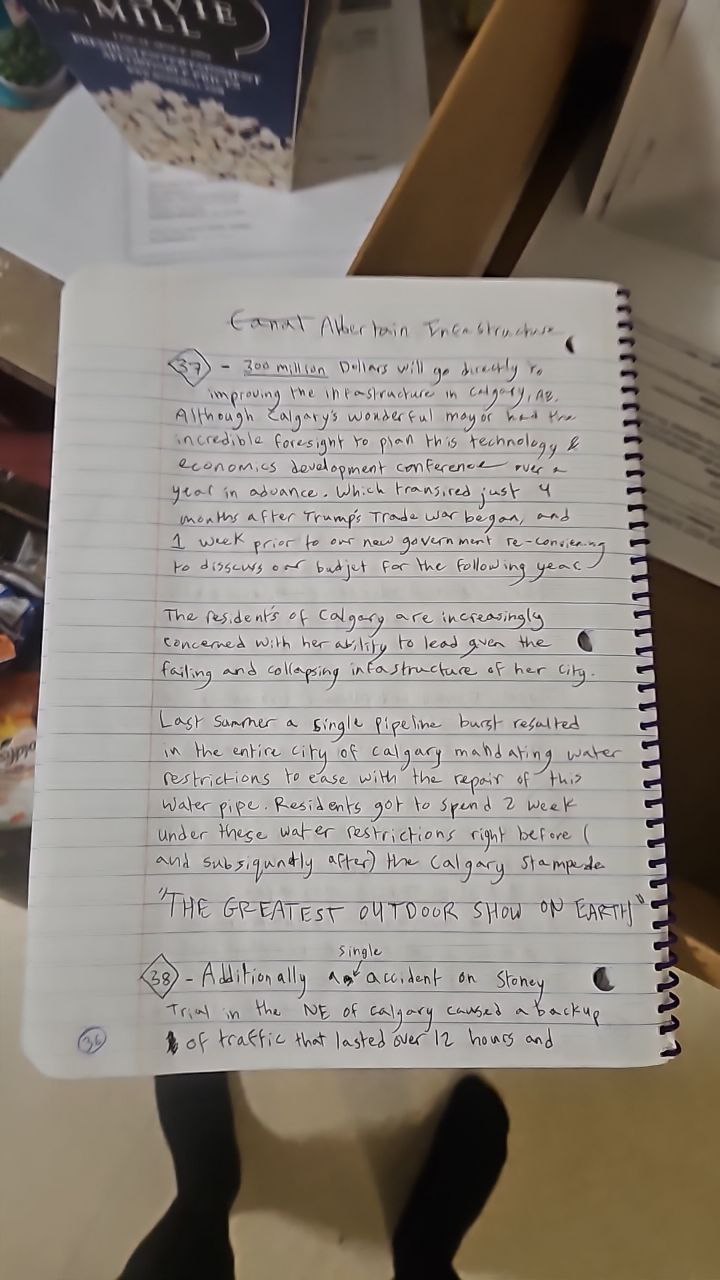 MOVIE
MILL
Albertain Infastructure
37 - 300 million Dollars will go directly to
improving the infastructure in Calgary, AB.
Although Calgary's wonderful mayor had the
incredible foresight to plan this technology &
economics development conference over a
year in advance. Which transired just 4
months after Trump's Trade War began, and
1 week prior to our new government re-conviening
to disscuss our budjet for the following year
The resident's of Calgary are increasingly
concerned with her ability to lead given the
failing and collapsing infastructure of her city.
Last summer a single pipeline burst resulted
in the entire city of calgary mandating water
restrictions to ease with the repair of this
water pipe. Residents got to spend 2 week
under these water restrictions right before (
and subsiquntly after) the Calgary Stampede
"THE GREATEST OUTDOOR SHOW ON EARTH"
single
38 - Additionally a accident on Stoney
Trial in the NE of calgary caused a backup
of traffic that lasted over 12 hours and
36